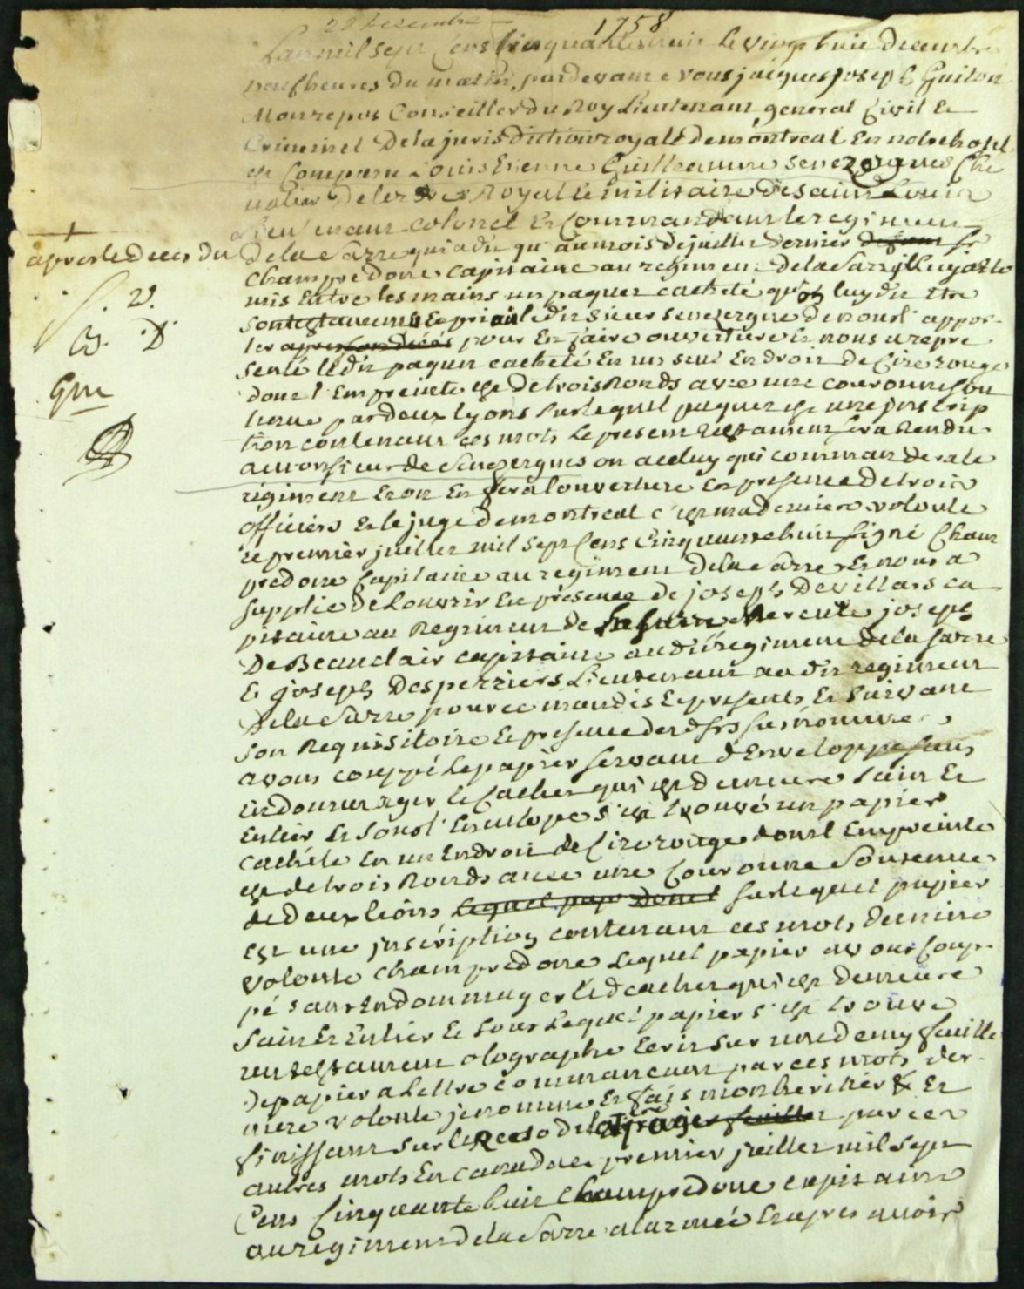 28 decembre 1758
Lan mil sept Cens Cinquante huit le vingt huit decembre
neuf heures du matin, pardevant nous jacques joseph Guiton
Monrepos Conseiller du Roy Lieutenant general Civil et
Criminel De la jurisdiction royalle de montreal En notre hostel
est Comparu Louis Etienne Guilleaume senezergues Che
valier de lordre Royal et militaire de saint Louis
Lieutenant colonel et Commandant le regiment
apres le deces du De la Sarre qui a dit qu'au mois de juillet dernier defunt Sr
Champredone capitaine au regiment de la Sarre luy a
mis Entre les mains un paquet cacheté qu'on luy dit Etre
Son testament Et prié ledit sieur senezergue de nous l'appor
ter apres son deces pour En faire ouverture Et nous a repre
senté ledit paquet cacheté En un seul Endroit de Cire rouge
dont l'Empreinte est de trois Ronds avec une couronne sou
tenue par deux Lyons sur lequel paquet est une jnscrip
tion contenant ces mots Le present testament sera rendu
a monsieur de Senezergues ou a celuy qui commandera le
regiment Et on En fera louverture En presence de trois
officiers Et le juge de montreal c'est ma derniere volonté
ce premier juillet mil sept Cens Cinquante huit signé Cham
predone Capitaine au regiment de la Sarre Et nous a
supplié de Louvrir En présence de joseph Devillars ca
pitaine au Regiment de joseph
De Beauclair capitaine audit regiment de la Sarre
Et joseph Desperriers Lieutenant audit regiment
De la Sarre pour ce mandés Et presents Et suivant
Son Requisitoire Et presence des susnommés
avons couppé Le papier servant d'Enveloppe sans
Endommager le Cachet qui est demeuré sain Et
Entier Et sous l'Envelope s'est trouvé un papier
cacheté En un Endroit de Cire rouge dont l'Empreinte
est de trois Ronds avec une Couronne soutenue
de deux lions lequel papier sur lequel papier
est une jnscription contenant ces mots derniere
volonté champredone Lequel papier avons Coup
pé sans Endommager led cachet qui est demeuré
Sain Et Entier Et sous Lequel papier s'est trouvé
un testament olographe Ecrit sur une demy feuille
De papier a Lettre commancant par ces mots der
niere volonté je nomme Et fais mon heritier & Et
finissant sur le Recto de la page par ces
autres mots En canada ce premier juillet mil sept
Cens Cinquante huit Champredone capitaine
au regiment de la Sarre a larmée Et apres avoir